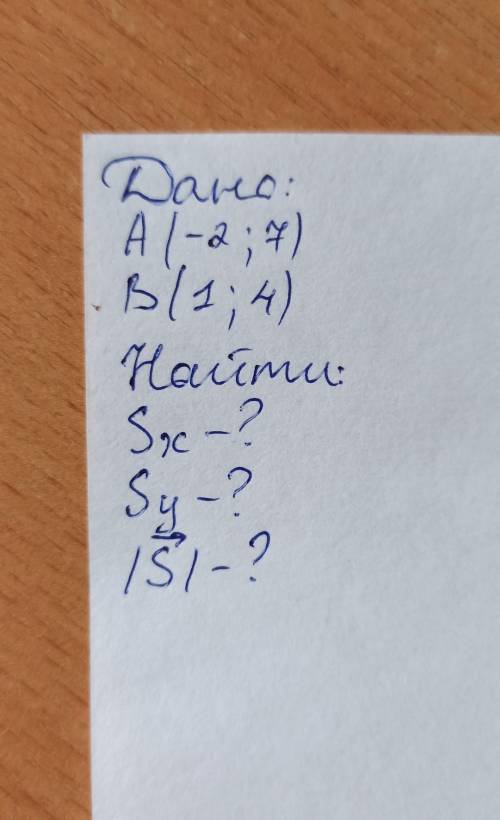 Дано:
A(-2; 7)
B(1; 4)
Найти:
Sx -?
Sy -?
|S⃗| -?